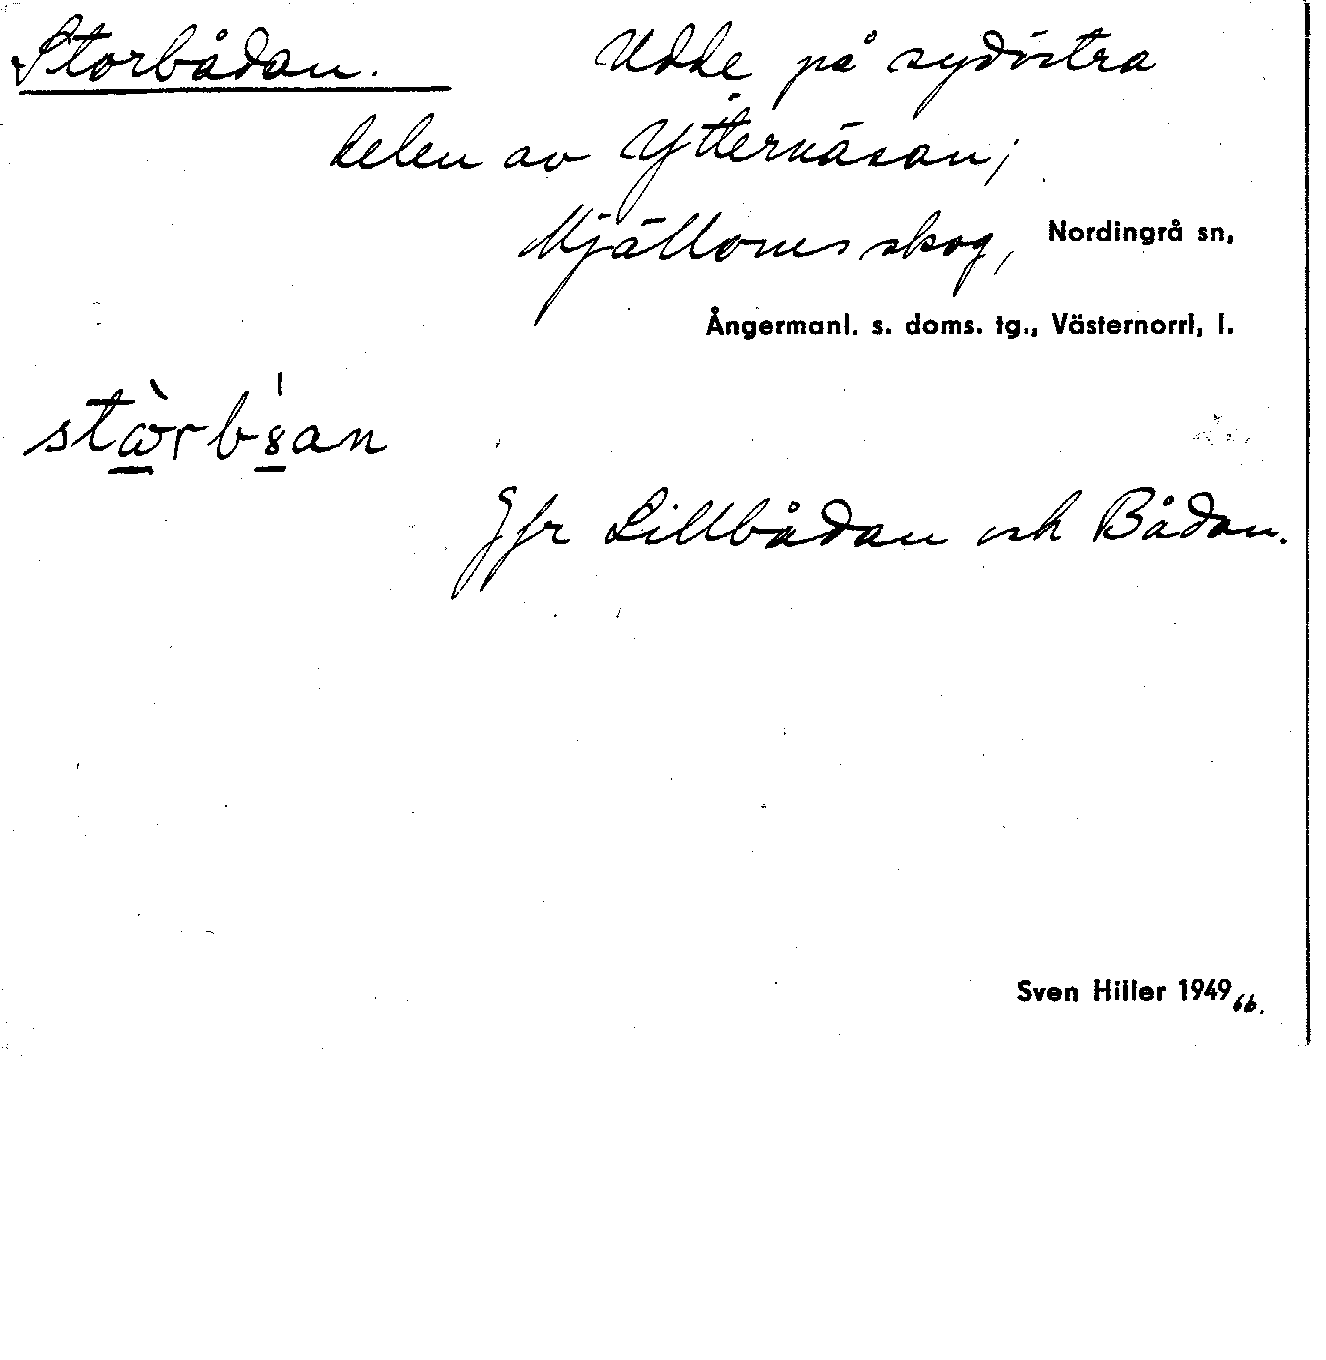 Storbådan. Udde på sydöstra
delen av Ytternäsan;
Mjällomsskog, Nordingrå sn,
Ångermanl. s. doms. tg., Västernorrl, l.
Jfr Lillbådan och Bådan.
Sven Hiller 1949